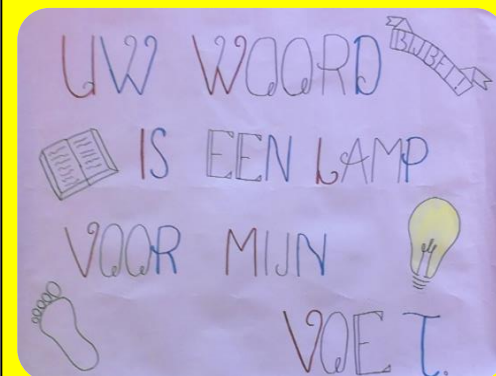 UW WOORD
BIJBEL!
IS EEN LAMP
VOOR MIJN
VOET.